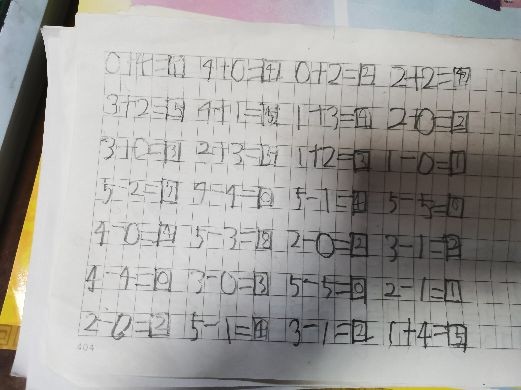 0+4=4 4+0=4 0+2=2 2+2=4
3+2=5 4+1=5 1+3=4 2+0=2
3+0=3 2+3=5 1+2=3 1-0=1
5-2=3 4-4=0 5-1=4 5-5=0
4-0=4 5-3=2 2-0=2 3-1=2
4-4=0 3-0=3 5-5=0 2-1=1
2-0=2 5-1=4 3-1=2 1+4=5
404